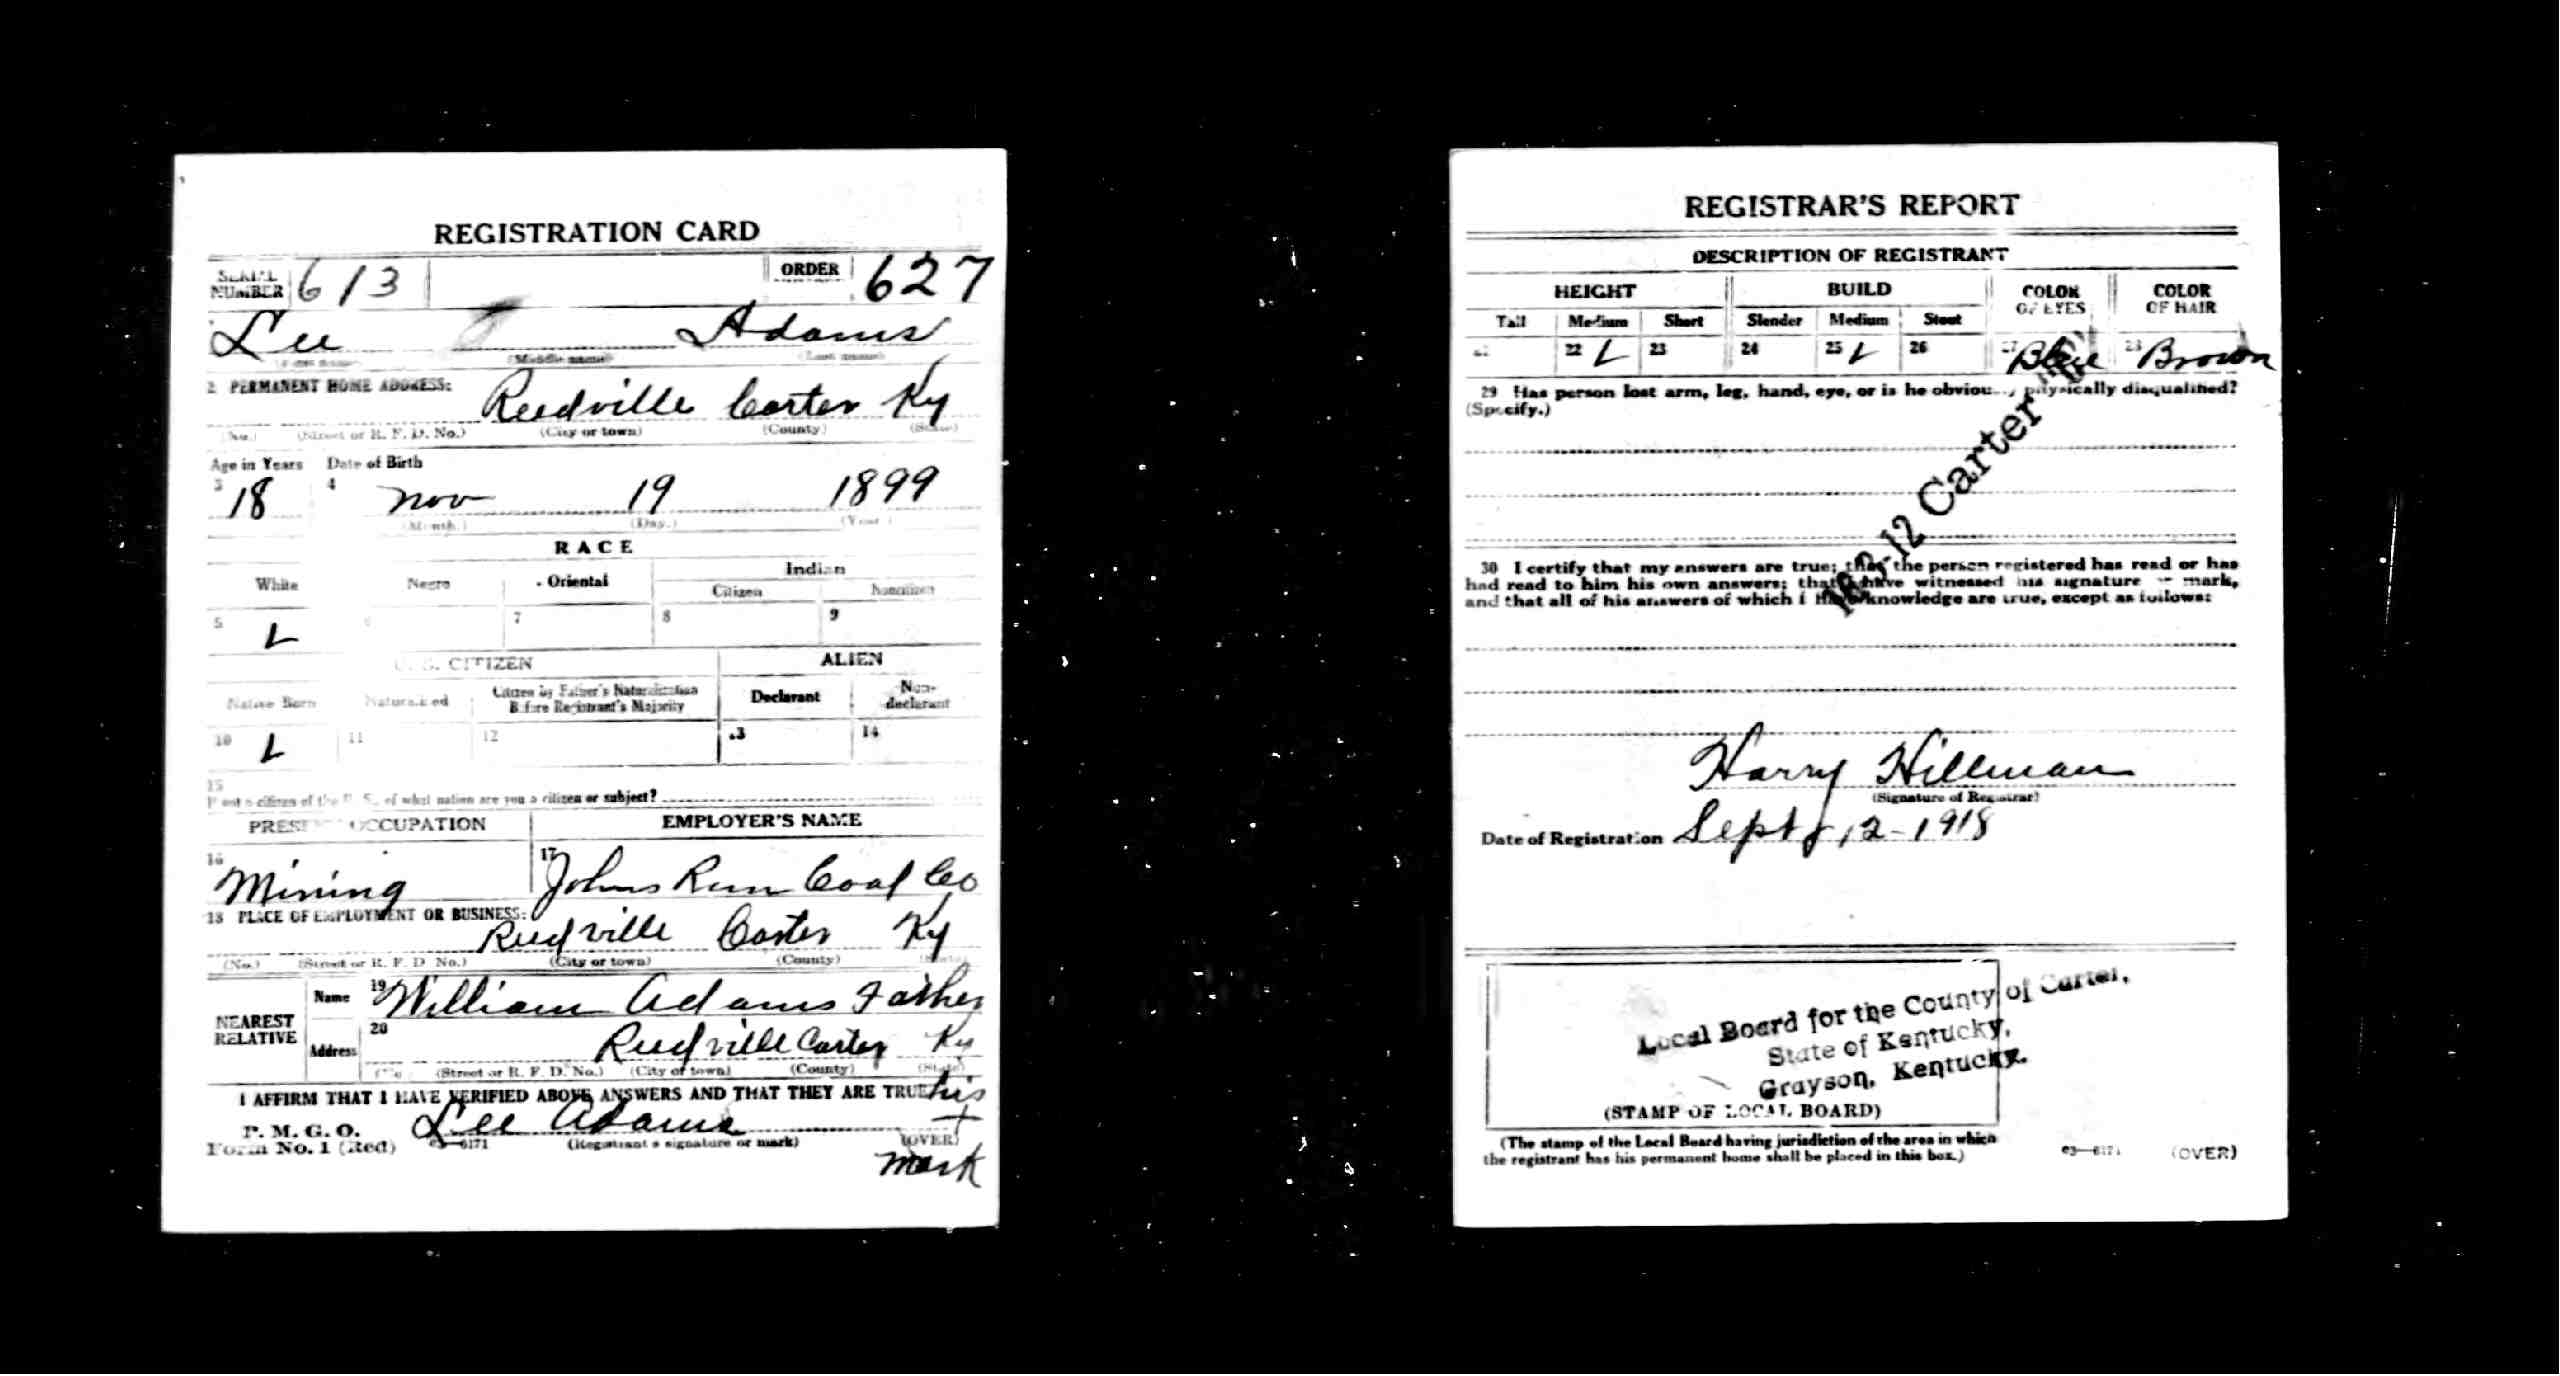 REGISTRATION CARD
SERIAL NUMBER 613 ORDER 627
Lee Adams
(Middle name) (Last name)
2 PERMANENT HOME ADDRESS:
Reedville Carter Ky
(No.) (Street or R. F. D. No.) (City or town) (County) (State)
Age in Years Date of Birth
3 18 4 Nov 19 1899
(Month.) (Day.) (Year.)
RACE
White Negro Oriental Indian
Citizen Noncitizen
5 L 6 7 8 9
U. S. CITIZEN ALIEN
Native Born Naturalized Citizen by Father's Naturalization Before Registrant's Majority Declarant Non-declarant
10 L 11 12 13 14
15
If not a citizen of the U. S., of what nation are you a citizen or subject?
PRESENT OCCUPATION EMPLOYER'S NAME
16 Mining 17 Johns Run Coal Co
18 PLACE OF EMPLOYMENT OR BUSINESS:
Reedville Carter Ky
(No.) (Street or R. F. D. No.) (City or town) (County) (State)
NEAREST RELATIVE
Name 19 William Adams Father
Address 20 Reedville Carter Ky
(No.) (Street or R. F. D. No.) (City of town) (County) (State)
I AFFIRM THAT I HAVE VERIFIED ABOVE ANSWERS AND THAT THEY ARE TRUE his
P. M. G. O. Lee Adams +
Form No. 1 (Red) 03—6171 (Registrant's signature or mark) (OVER)
mark
REGISTRAR'S REPORT
DESCRIPTION OF REGISTRANT
HEIGHT BUILD COLOR OF EYES COLOR OF HAIR
Tall Medium Short Slender Medium Stout
21 22 L 23 24 25 L 26 27 Blue 28 Brown
29 Has person lost arm, leg, hand, eye, or is he obviously physically disqualified?
(Specify.)
16-2-12 Carter
30 I certify that my answers are true; that the person registered has read or has
had read to him his own answers; that I have witnessed his signature or mark,
and that all of his answers of which I have knowledge are true, except as follows:
Harry Hillman
(Signature of Registrar)
Date of Registration Sept 12-1918
Local Board for the County of Carter,
State of Kentucky,
Grayson, Kentucky.
(STAMP OF LOCAL BOARD)
(The stamp of the Local Board having jurisdiction of the area in which
the registrant has his permanent home shall be placed in this box.)
03—6171 (OVER)